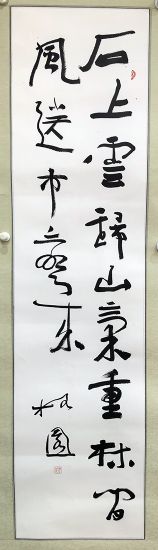 石上雲歸山氣重林間
風送市聲來